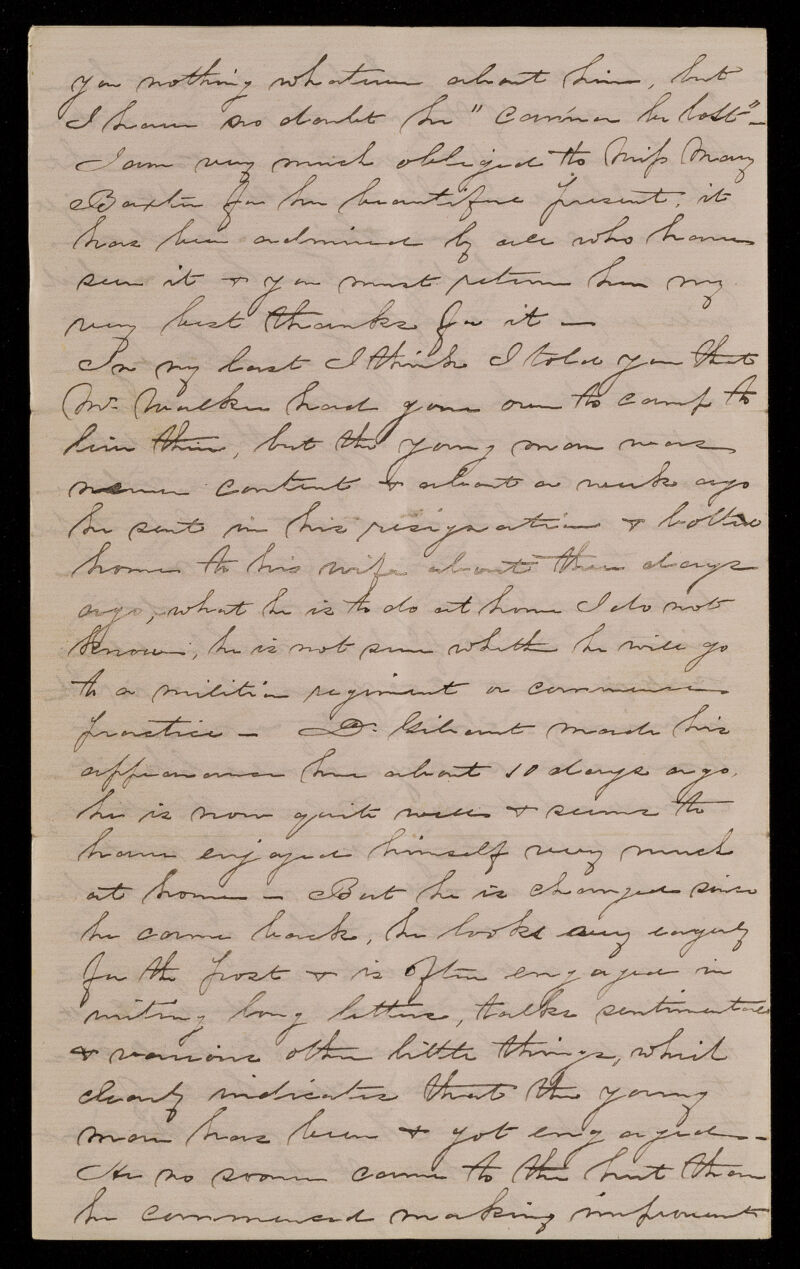 you nothing whatever about him, but
I have no doubt he "canna be lost" –
I am very much obliged to Miss Mary
Baxter for her beautiful present, it
has been admired by all who have
seen it & you must return her my
very best thanks for it –
In my last I think I told you that
Mr. Walker had gone over to camp to
live there, but the young man was
never content & about a week ago
he sent in his resignation & bolted
home to his wife about three days
ago, what he is to do at home I do not
know, he is not sure whether he will go
to a militia regiment or commence
practice – Dr. Gibaut made his
appearance here about 10 days ago,
he is now quite well & seems to
have enjoyed himself very much
at home – But he is changed since
he came back, he looks very eagerly
for the post & is often engaged in
writing long letters, talks sentimental
& various other little things, which
clearly indicates that the young
man has been & got engaged –
He no sooner came to the hut than
he commenced making improvent